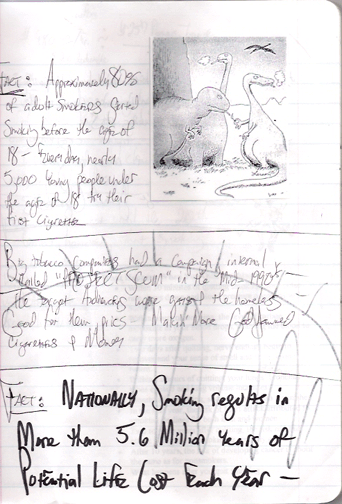 FACT: Approximately 80%
of adult smokers started
smoking before the age of
18 - Everyday, nearly
5,000 young people under
the age of 18 try their
first cigarette
Big tobacco companies had a campaign internal
titled "PROJECT SCUM" in the Mid-1990's
The target audiences were gays & the homeless
Good for them pricks - Makin' More God Damned
Cigarettes & Money
FACT: NATIONALLY, Smoking results in
More than 5.6 Million Years of
Potential Life Lost Each Year -